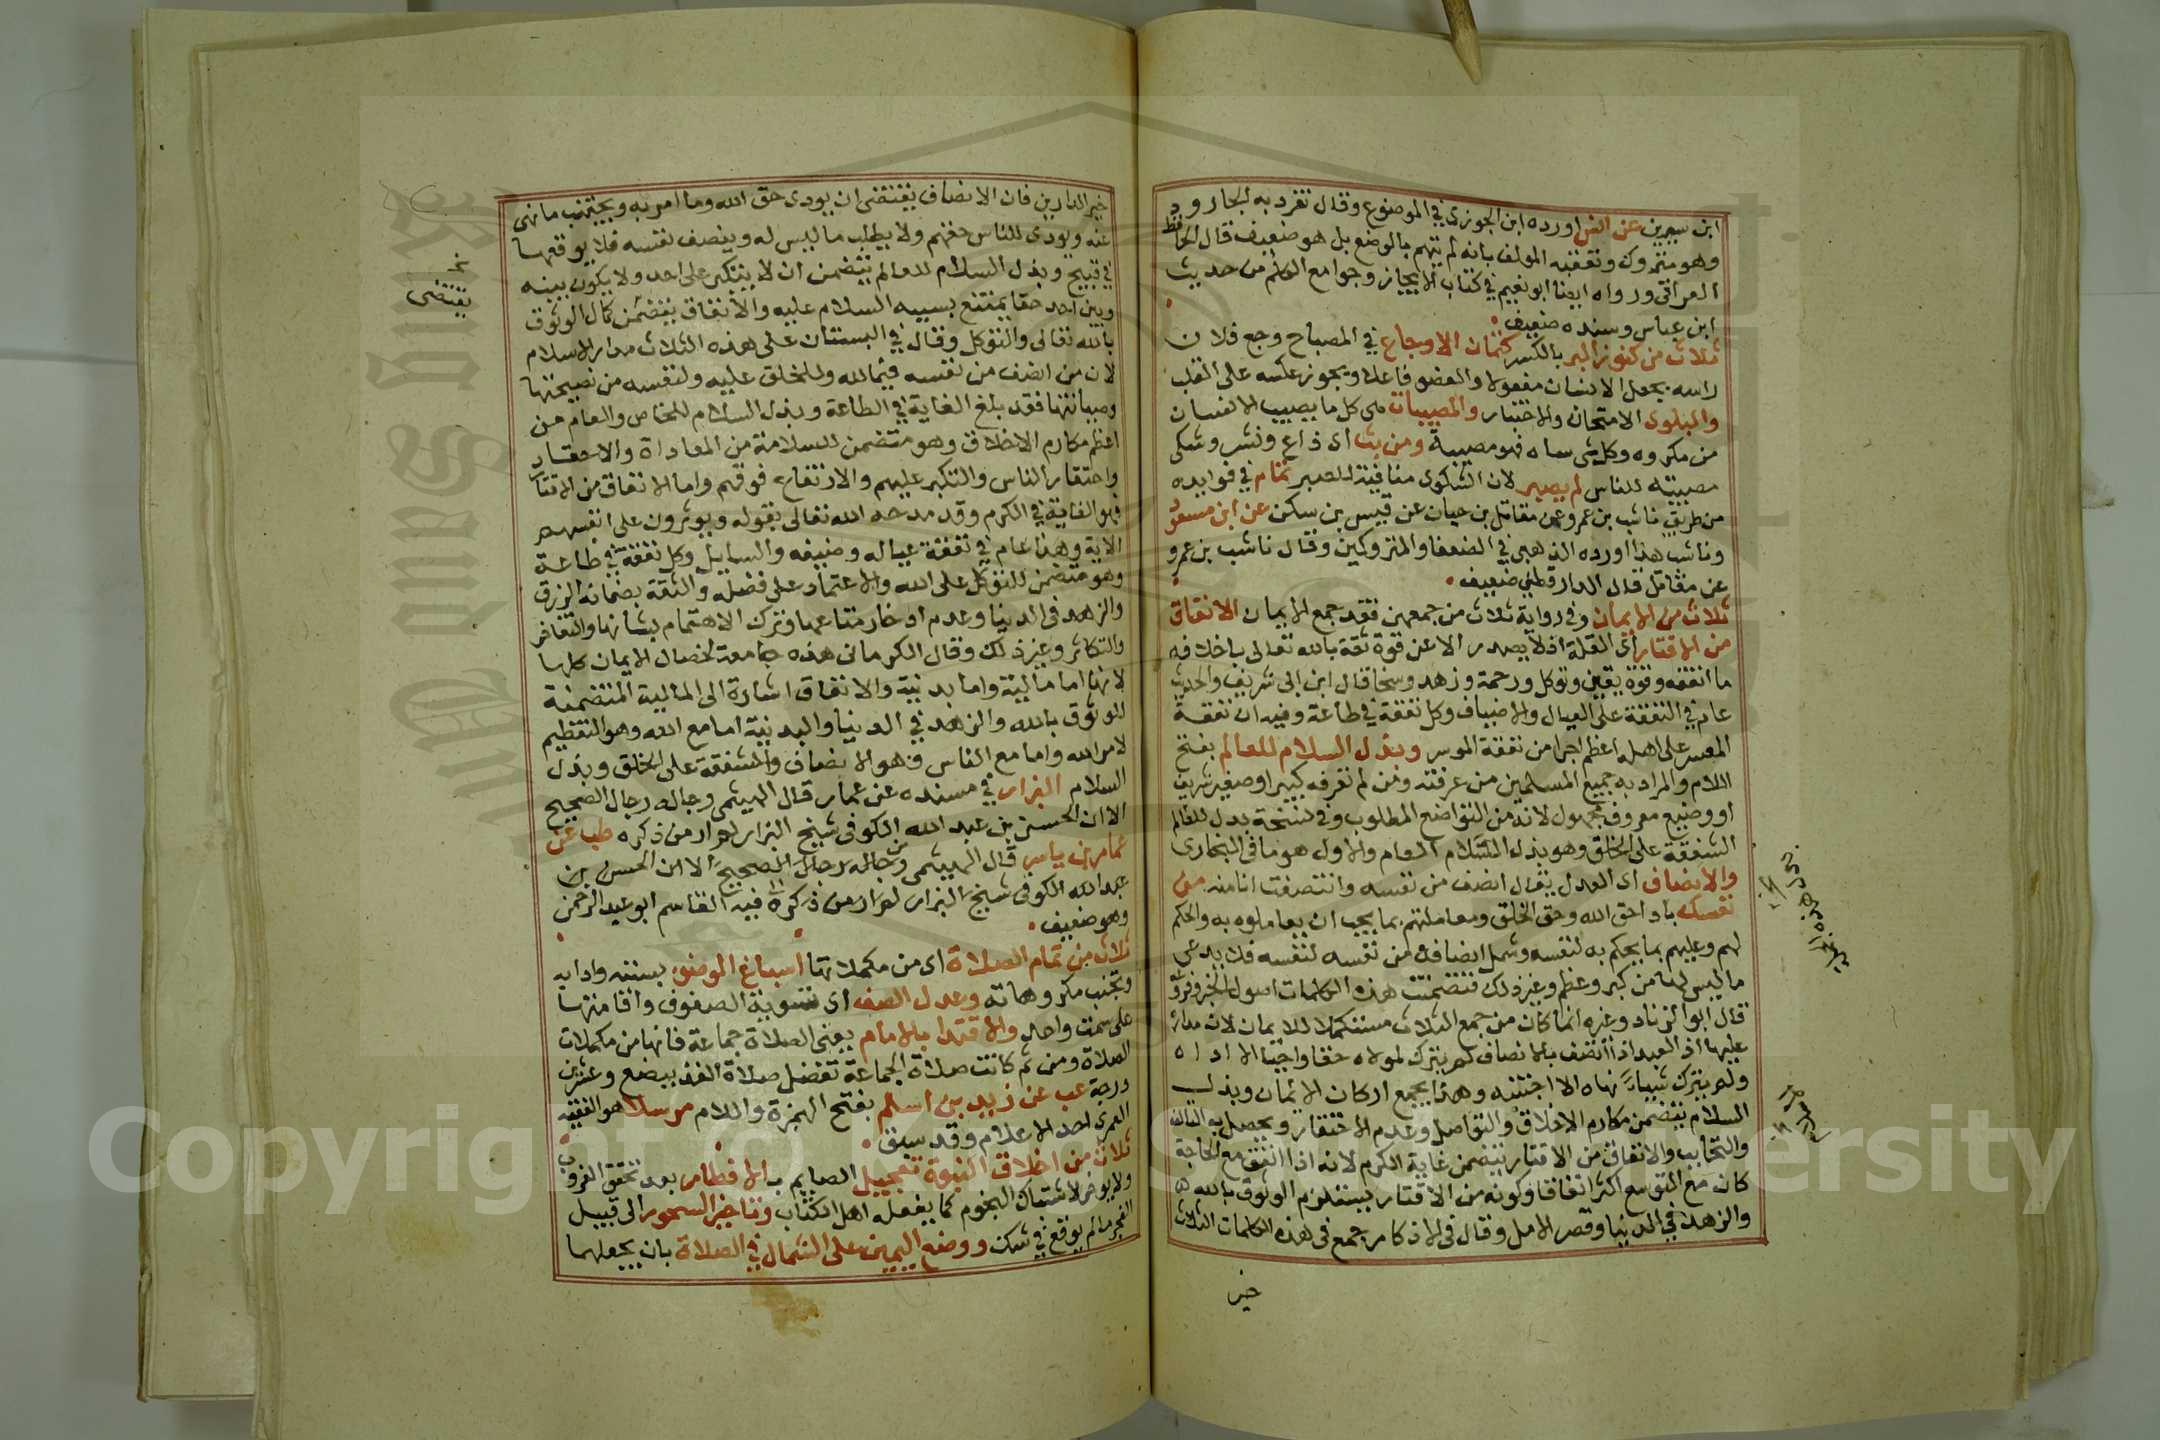 ابن سيرين عن انس اورده ابن الجوزي في الموضوع وقال تفرد به الجارود
وهو متروك وتعقبه المولف بانه لم يتهم بالوضع بل هو ضعيف قال الحافظ
العراقي ورواه ايضا ابو نعيم في كتاب الايجاز وجوامع الكلم من حديث
ابن عباس وسنده ضعيف
ثلاث من كنوز البر بالكسر كتمان الاوجاع في المصباح وجع فلان
راسه يجعل الانسان مفعولا والعضو فاعلا ويجوز عكسه على القلب
والبلوى الامتحان والاختبار والمصيبات هي كل ما يصيب الانسان
من مكروه وكل شي ساه فهو مصيبة ومن بث اي ذاع ونشر وشكى
مصيبته للناس لم يصبر لان الشكوى منافية للصبر تمام في فوايده
من طريق ناشب بن عمرو عن مقاتل بن حيان عن قيس بن سكن عن ابن مسعود
وناشب هذا اورده الذهبي في الضعفا والمتروكين وقال ناشب بن عمرو
عن مقاتل قال الدارقطني ضعيف
ثلاث من الايمان وفي رواية ثلاث من جمعهن فقد جمع الايمان الانفاق
من الاقتار اي القلة اذ لا يصدر الا عن قوة ثقة بالله تعالى باخلافه
ما انفقه وقوة يقين وتوكل ورحمة وزهد وسخا قال ابن ابي شريف والحديث
عام في النفقة على العيال والاضياف وكل نفقة في طاعة وفيه ان نفقة
المعسر على اهله اعظم اجرا من نفقة الموسر وبذل السلام للعالم بفتح
اللام والمراد به جميع المسلمين من عرفته ومن لم تعرفه كبير او صغير شريف
او وضيع معروف مجهول لانه من التواضع المطلوب وفي نسخة بدل للعالم
الشفقة على الخلق وهو بذل السلام العام والاول هو ما في البخاري
والانصاف اي العدل يقال انصف من نفسه وانتصفت انا منه من
نفسك باداحق الله وحق الخلق ومعاملتهم بما يجب ان يعاملوه به والحكم
لهم وعليهم بما يحكم به لنفسه وشمل انصافه من نفسه لنفسه فلا يدعي
ما ليس لها من كبر وعظم وغير ذلك فتضمنت هذه الكلمات اصول الخير وفروعه
قال ابو الزناد وغيره انما كان من جمع الثلاث مستكملا للايمان لان مداره
عليها اذ العبد اذا اتصف بالانصاف لم يترك لمولاه حقا واجبا الا اداه
ولم يترك شيا نهاه الا اجتنبه وهذا يجمع اركان الايمان وبذل
السلام يتضمن مكارم الاخلاق والتواصل وعدم الاحتقار ويحصل به التالف
والتحابب والانفاق من الاقتار يتضمن غاية الكرم لانه اذا انفق مع الحاجة
كان مع التوسع اكثر انفاقا وكونه من الاقتار يستلزم الوثوق بالله
والزهد في الدنيا وقصر الامل وقال في الاذكار جمع في هذه الكلمات الثلاث
خير
خير الدارين فان الانصاف يقتضي ان يودي حق الله وما امر به ويجتنب ما نهى
عنه ويودي للناس حقهم ولا يطلب ما ليس له وينصف نفسه فلا يوقعها
في قبيح وبذل السلام للعالم يتضمن ان لا يتكبر على احد ولا يكون بينه
وبين احد حقا يمتنع بسببه السلام عليه والانفاق يتضمن كمال الوثوق
يقتضي
بالله تعالى والتوكل وقال في البستان على هذه الثلاث مدار الاسلام
لان من انصف من نفسه فيما لله وللخلق عليه ولنفسه من نصيحتها
وصيانتها فقد بلغ الغاية في الطاعة وبذل السلام للخاص والعام من
اعظم مكارم الاخلاق وهو متضمن للسلامة من المعاداة والاحقاد
واحتقار الناس والتكبر عليهم والارتفاع فوقهم واما الانفاق من الاقتار
فهو الغاية في الكرم وقد مدحه الله تعالى بقوله ويوثرون على انفسهم
الاية وهذا عام في نفقة عياله وضيفه والسايل وكل نفقة في طاعة
وهو متضمن للتوكل على الله والاعتماد على فضله والثقة بضمانه الرزق
والزهد في الدنيا وعدم ادخار متاعها وترك الاهتمام بشانها والتفاخر
والتكاثر وغير ذلك وقال الكرماني هذه جامعة لخصال الايمان كلها
لانها اما مالية واما بدنية والانفاق اشارة الى المالية المتضمنة
للوثوق بالله والزهد في الدنيا والبدنية اما مع الله وهو التعظيم
لامر الله واما مع الناس فهو الانصاف والشفقة على الخلق وبذل
السلام البزار في مسنده عن عمار قال الهيثمي رجاله رجال الصحيح
الا ان الحسن بن عبد الله الكوفي شيخ البزار لم ار من ذكره طب عن
عمار بن ياسر قال الهيثمي رجاله رجال الصحيح الا ان الحسن بن
عبد الله الكوفي شيخ البزار لم ار من ذكره فيه القاسم ابو عبد الرحمن
وهو ضعيف
ثلاث من تمام الصلاة اي من مكملاتها اسباغ الوضو بسننه وادابه
وتجنب مكروهاته وعدل الصف اي تسوية الصفوف واقامتها
على سمت واحد والاقتدا بالامام يعني الصلاة جماعة فانها من مكملات
الصلاة ومن ثم كانت صلاة الجماعة تفضل صلاة الفذ ببضع وعشرين
درجة عب عن زيد بن اسلم بفتح الهمزة واللام مرسلا هو الفقيه
العمري احد الاعلام وقد سبق
ثلاث من اخلاق النبوة تعجيل الصايم بالافطار بعد تحقق الغروب
ولا يوخر لاشتباك النجوم كما يفعله اهل الكتاب وتاخير السحور الى قبيل
الفجر ما لم يوقع في شك ووضع اليمين على الشمال في الصلاة بان يجعلهما
Copyright © King Saud University